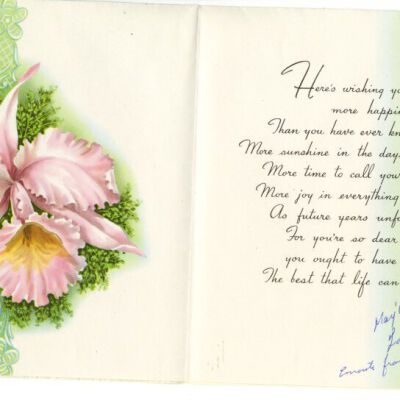 Here's wishing yo
more happi
Than you have ever kn
More sunshine in the day
More time to call your
More joy in everything
As future years unfo
For you're so dear
you ought to have
The best that life can
May
Enroute fro